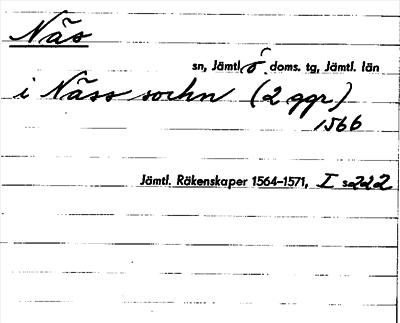 Näs
sn, Jämtl. ö. doms. tg, Jämtl. län
i Näss sochn (2 ggr)
1566
Jämtl. Räkenskaper 1564–1571, I s 222